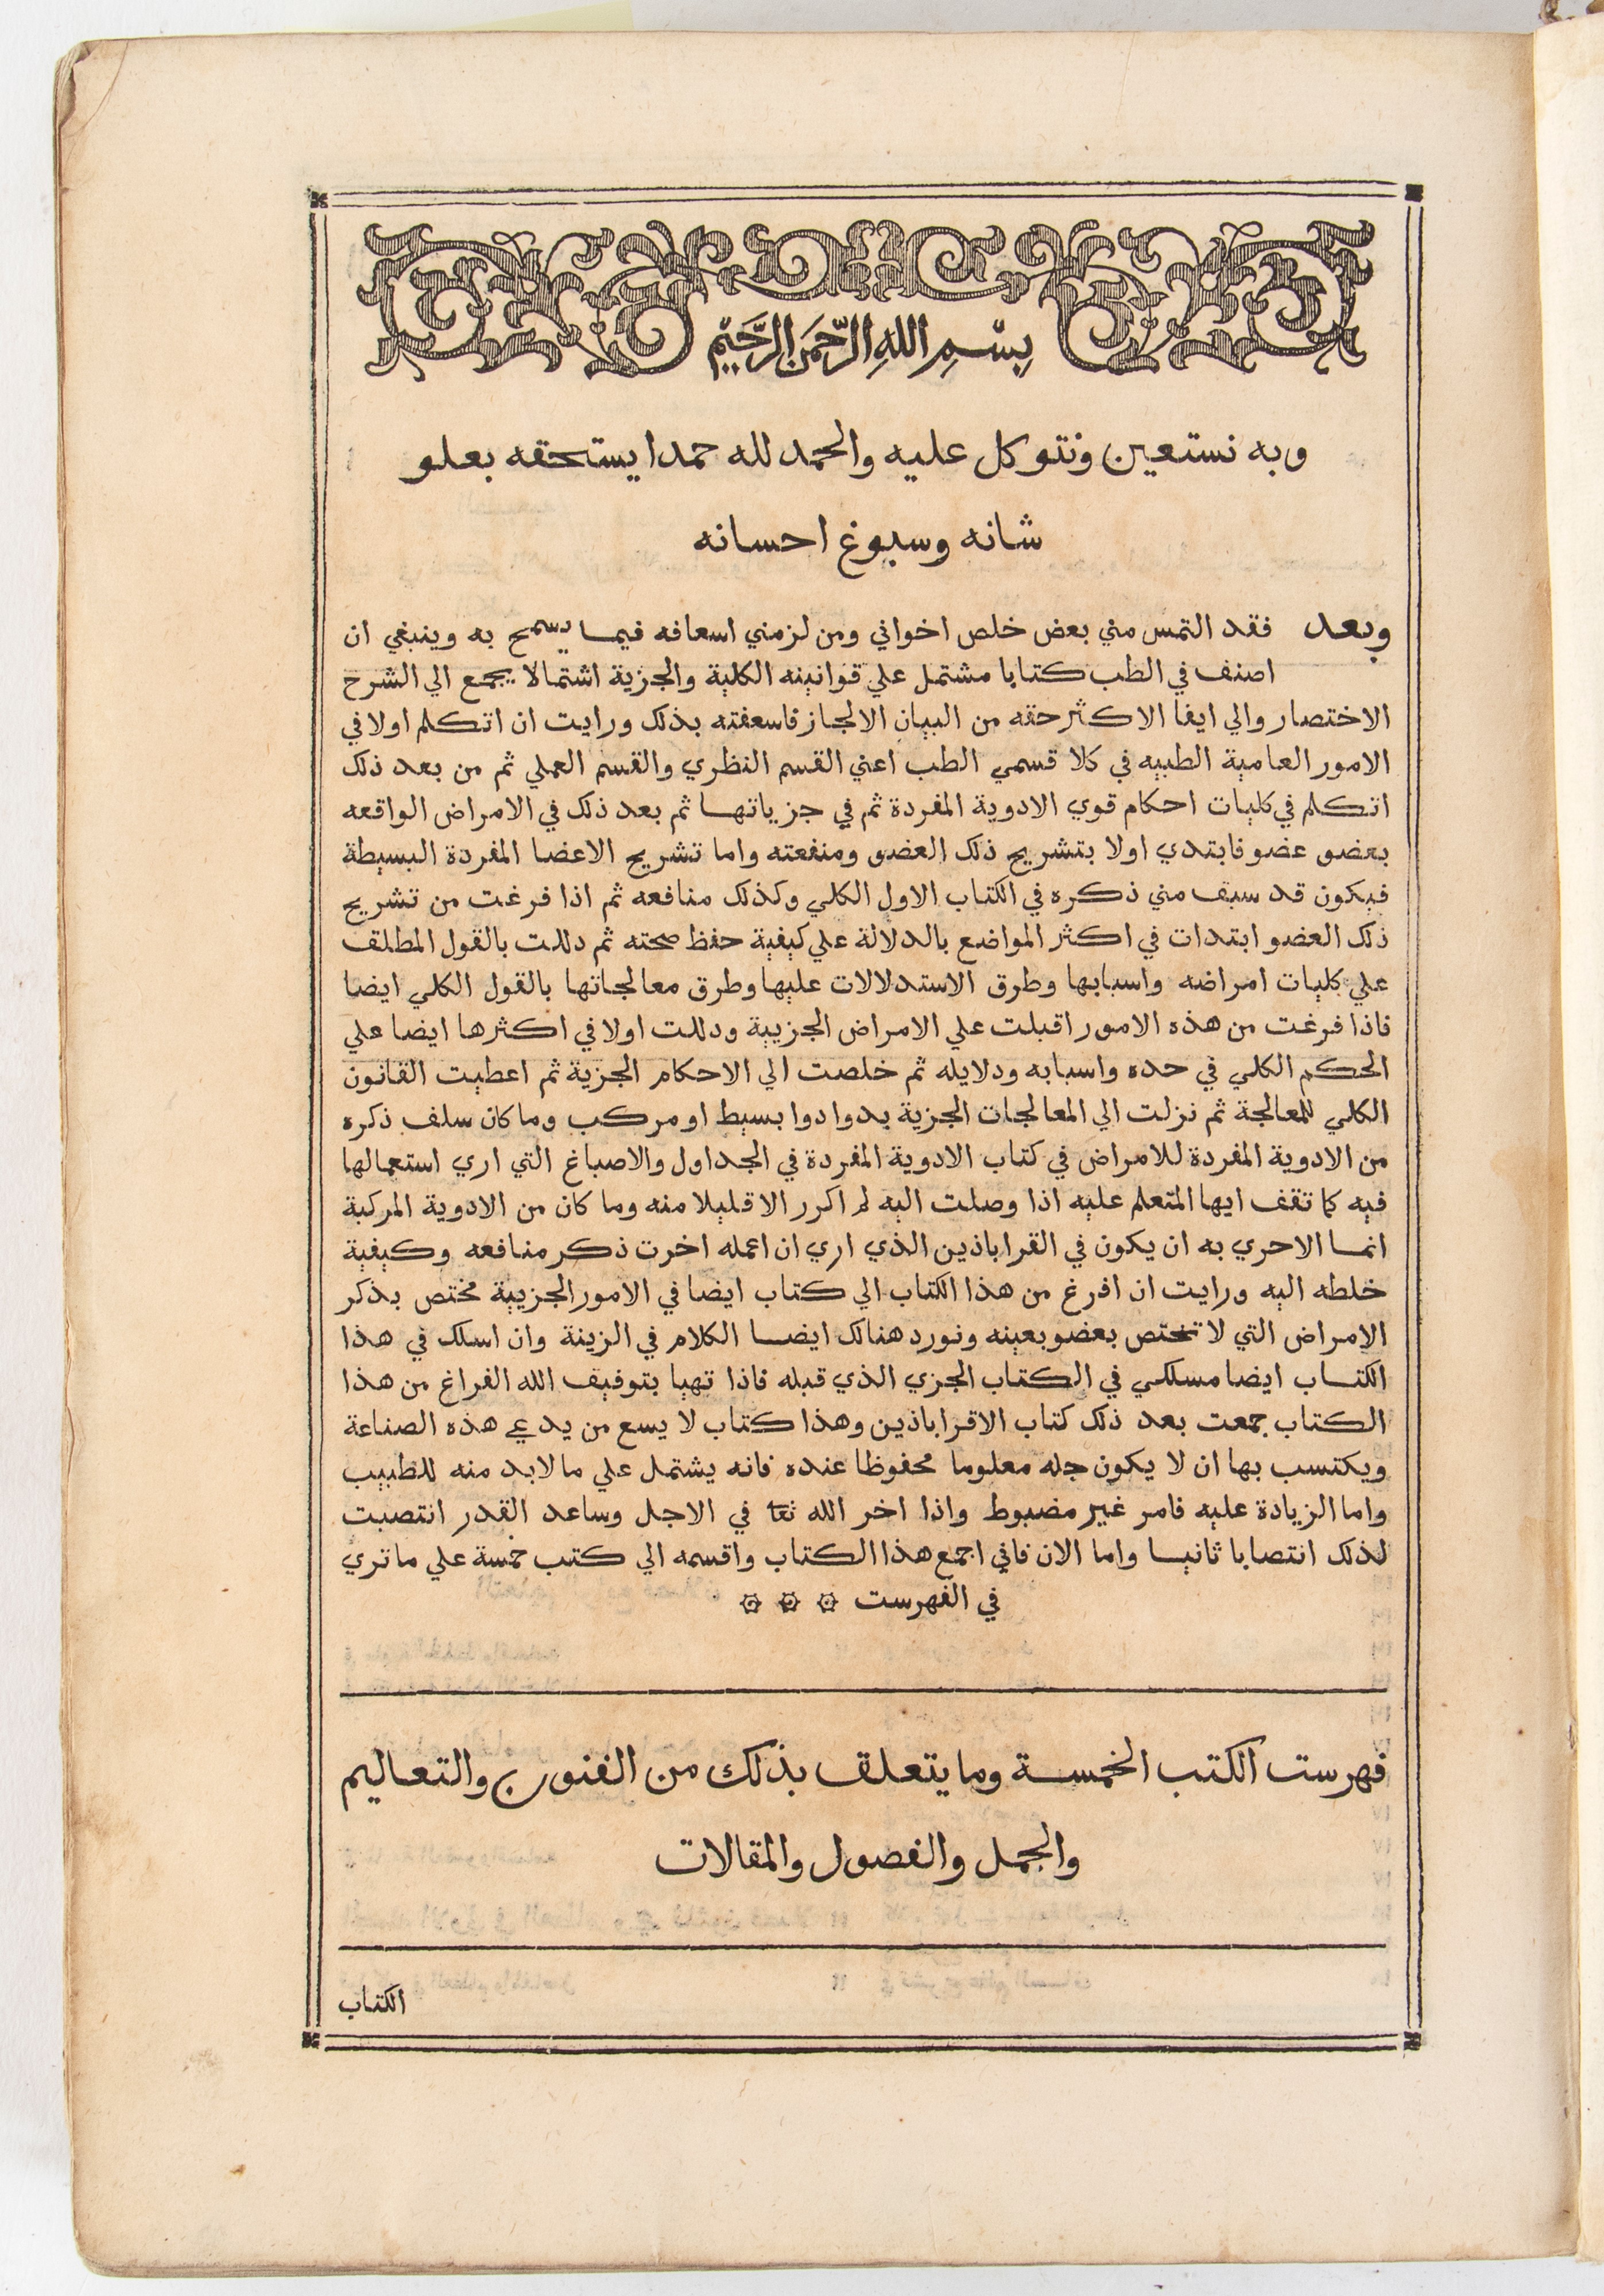 بِسْمِ اللهِ الرَّحْمَنِ الرَّحَيْمِ
وبه نستعين ونتوكل عليه والحمد لله حمدا يستحقه بعلو
شانه وسبوغ احسانه
وبعد فقد التمس مني بعض خلص اخواني ومن لزمني اسعافه فيما يسمح به وينبغي ان
اصنف في الطب كتابا مشتمل علي قوانينه الكلية والجزية اشتمالا يجمع الي الشرح
الاختصار والي ايفا الاكثر حقه من البيان الالجاز فاسعفته بذلك ورايت ان اتكلم اولا في
الامور العامية الطبيه في كلا قسمي الطب اعني القسم النظري والقسم العملي ثم من بعد ذلك
اتكلم في كليات احكام قوي الادوية المفردة ثم في جزياتها ثم بعد ذلك في الامراض الواقعه
بعضو عضو فابتدي اولا بتشريح ذلك العضو ومنفعته واما تشريح الاعضا المفردة البسيطة
فيكون قد سبق مني ذكره في الكتاب الاول الكلي وكذلك منافعه ثم اذا فرغت من تشريح
ذلك العضو ابتدات في اكثر المواضع بالدلالة علي كيفية حفظ صحته ثم دللت بالقول المطلق
علي كليات امراضه واسبابها وطرق الاستدلالات عليها وطرق معالجاتها بالقول الكلي ايضا
فاذا فرغت من هذه الامور اقبلت علي الامراض الجزيية ودللت اولا في اكثرها ايضا علي
الحكم الكلي في حده واسبابه ودلايله ثم خلصت الي الاحكام الجزية ثم اعطيت القانون
الكلي للمعالجة ثم نزلت الي المعالجات الجزية بدوا دوا بسيط او مركب وما كان سلف ذكره
من الادوية المفردة للامراض في كتاب الادوية المفردة في الجداول والاصباغ التي اري استعمالها
فيه كما تقف ايها المتعلم عليه اذا وصلت اليه لم اكرر الا قليلا منه وما كان من الادوية المركبة
انما الاحري به ان يكون في القراباذين الذي اري ان اعمله اخرت ذكر منافعه وكيفية
خلطه اليه ورايت ان افرغ من هذا الكتاب الي كتاب ايضا في الامور الجزيية مختص بذكر
الامراض التي لا تختص بعضو بعينه ونورد هنالك ايضا الكلام في الزينة وان اسلك في هذا
الكتاب ايضا مسلكي في الكتاب الجزي الذي قبله فاذا تهيا بتوفيق الله الفراغ من هذا
الكتاب جمعت بعد ذلك كتاب الاقراباذين وهذا كتاب لا يسع من يدعي هذه الصناعة
ويكتسب بها ان لا يكون جله معلوما محفوظا عنده فانه يشتمل علي ما لابد منه للطبيب
واما الزيادة عليه فامر غير مضبوط واذا اخر الله تعا في الاجل وساعد القدر انتصبت
لذلك انتصابا ثانيا واما الان فاني اجمع هذا الكتاب واقسمه الي كتب خمسة علي ما تري
في الفهرست
فهرست الكتب الخمسة وما يتعلق بذلك من الفنون والتعاليم
والجمل والفصول والمقالات
الكتاب